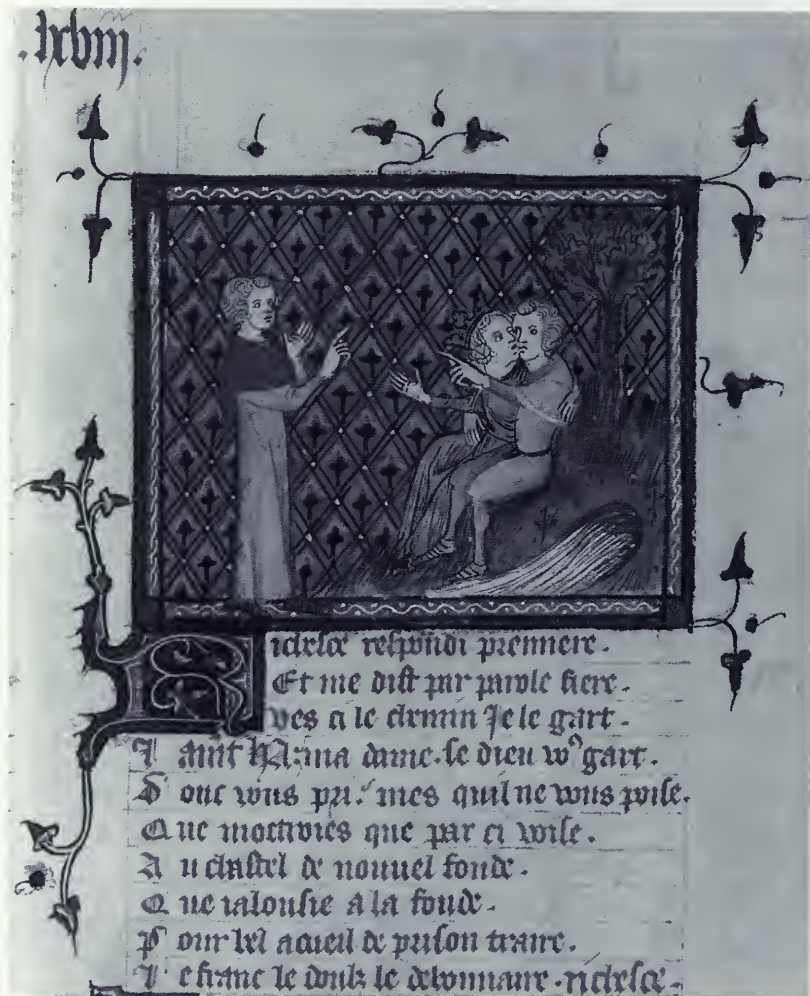 .lxviij.
Richesce respondi premiere.
Et me dist par parole fiere.
ves ci le chemin Je le gart.
ma dame. se dieu vo9 gart.
Donc vous pri. mes quil ne vous poise.
Que mottroies que par ci voise.
Au chastel de nouuel fonde.
Que ialousie a la fonde.
Pour bel acueil de prison traire.
Le franc le doulz le debonnaire. richesce.